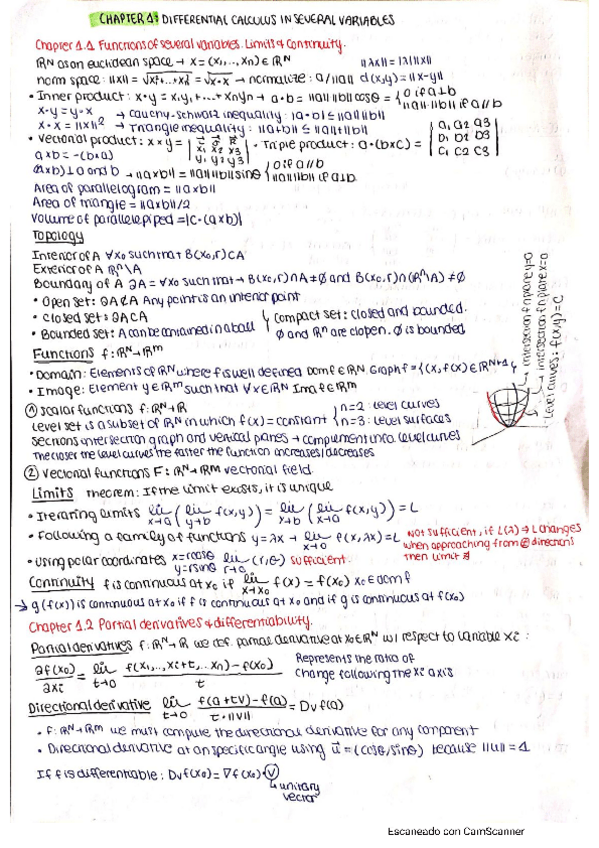 CHAPTER 1: DIFFERENTIAL CALCULUS IN SEVERAL VARIABLES
Chapter 1.1 Functions of several variables. Limits & Continuity.
ℝᴺ as an euclidean space → x = (x₁, ..., xₙ) ∈ ℝᴺ ||λx|| = |λ| ||x||
norm space: ||x|| = √x₁²+...+xₙ² = √x·x → normalize: a/||a|| d(x,y) = ||x-y||
• Inner product: x·y = x₁y₁+...+xₙyₙ → a·b = ||a|| ||b|| cosθ = { 0 if a⊥b
||a|| ||b|| if a//b
x·y = y·x → Cauchy-Schwarz inequality: |a·b| ≤ ||a|| ||b||
x·x = ||x||² → Triangle inequality: ||a+b|| ≤ ||a||+||b||
• Vectorial product: x×y = | x₁ x₂ x₃ | • Triple product: a·(b×c) = | a₁ a₂ a₃ |
y₁ y₂ y₃ | b₁ b₂ b₃ |
a×b = -(b×a) | c₁ c₂ c₃ |
(a×b) ⊥ a and b → ||a×b|| = ||a|| ||b|| sinθ { 0 if a//b
||a|| ||b|| if a⊥b
Area of parallelogram = ||a×b||
Area of triangle = ||a×b||/2
Volume of parallelepiped = |c·(a×b)|
Topology
Interior of A ∀x₀ such that B(x₀,r) ⊂ A
Exterior of A ℝᴺ\A
Boundary of A ∂A = ∀x₀ such that → B(x₀,r)∩A ≠ ∅ and B(x₀,r)∩(ℝᴺ\A) ≠ ∅
• Open set: ∂A ⊄ A Any point is an interior point
• Closed set: ∂A ⊂ A { Compact set: closed and bounded.
• Bounded set: A can be contained in a ball ∅ and ℝᴺ are clopen. ∅ is bounded
Functions f: ℝᴺ → ℝᵐ
• Domain: Elements of ℝᴺ where f is well defined Dom f ∈ ℝᴺ. Graph f = {(x, f(x)) ∈ ℝᴺ⁺¹}
• Image: Element y ∈ ℝᵐ such that ∀x ∈ ℝᴺ Im f ∈ ℝᵐ
→ intersection f n plane y=0
→ intersection f n plane x=0
Level curves: f(x,y) = C
① Scalar functions f: ℝᴺ → ℝ
Level set is a subset of ℝᴺ in which f(x) = constant { n=2: Level curves
n=3: Level surfaces
Sections intersection graph and vertical planes → complement into level curves
The closer the level curves the faster the function increases/decreases
② Vectorial functions F: ℝᴺ → ℝᵐ vectorial field.
Limits Theorem: If the limit exists, it is unique
• Iterating limits lim x→a ( lim y→b f(x,y) ) = lim y→b ( lim x→a f(x,y) ) = L
• Following a family of functions y = λx → lim x→0 f(x, λx) = L Not sufficient, if L(λ) → L changes
when approaching from ≠ directions
then limit ∄
• Using polar coordinates x = r cosθ y = r sinθ lim r→0 (r,θ) sufficient
Continuity f is continuous at x₀ if lim x→x₀ f(x) = f(x₀) x₀ ∈ dom f
→ g(f(x)) is continuous at x₀ if f is continuous at x₀ and if g is continuous at f(x₀)
Chapter 1.2 Partial derivatives & differentiability.
Partial derivatives f: ℝᴺ → ℝ we def. partial derivative at x₀ ∈ ℝᴺ w/ respect to variable xᵢ :
∂f(x₀)/∂xᵢ = lim t→0 f(x₁, ..., xᵢ+t, ... xₙ) - f(x₀) / t Represents the ratio of
change following the xᵢ axis
Directional derivative lim t→0 f(a+tv) - f(a) / t·||v|| = Dv f(a)
• f: ℝᴺ → ℝᵐ we must compute the directional derivative for any component
• Directional derivative at an specific angle using u⃗ = (cosθ, sinθ) because ||u|| = 1
If f is differentiable: Dv f(x₀) = ∇f(x₀)·v
↳ unitary
vector
Escaneado con CamScanner